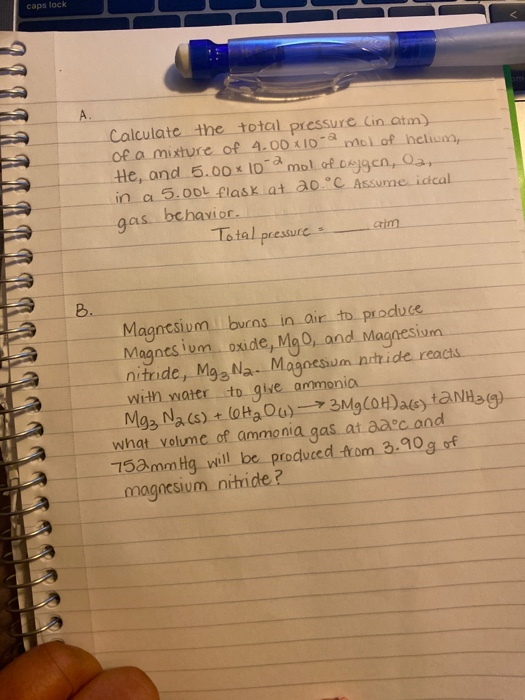 caps lock
A.
Calculate the total pressure (in atm)
of a mixture of 4.00 x 10⁻² mol of helium,
He, and 5.00 x 10⁻² mol of oxygen, O₂,
in a 5.00L flask at 20.°C Assume ideal
gas behavior.
Total pressure = ____ atm
B.
Magnesium burns in air to produce
Magnesium oxide, MgO, and Magnesium
nitride, Mg₃N₂. Magnesium nitride reacts
with water to give ammonia
Mg₃N₂(s) + 6H₂O(l) → 3Mg(OH)₂(s) + 2NH₃(g)
what volume of ammonia gas at 22°C and
752mmHg will be produced from 3.90g of
magnesium nitride?